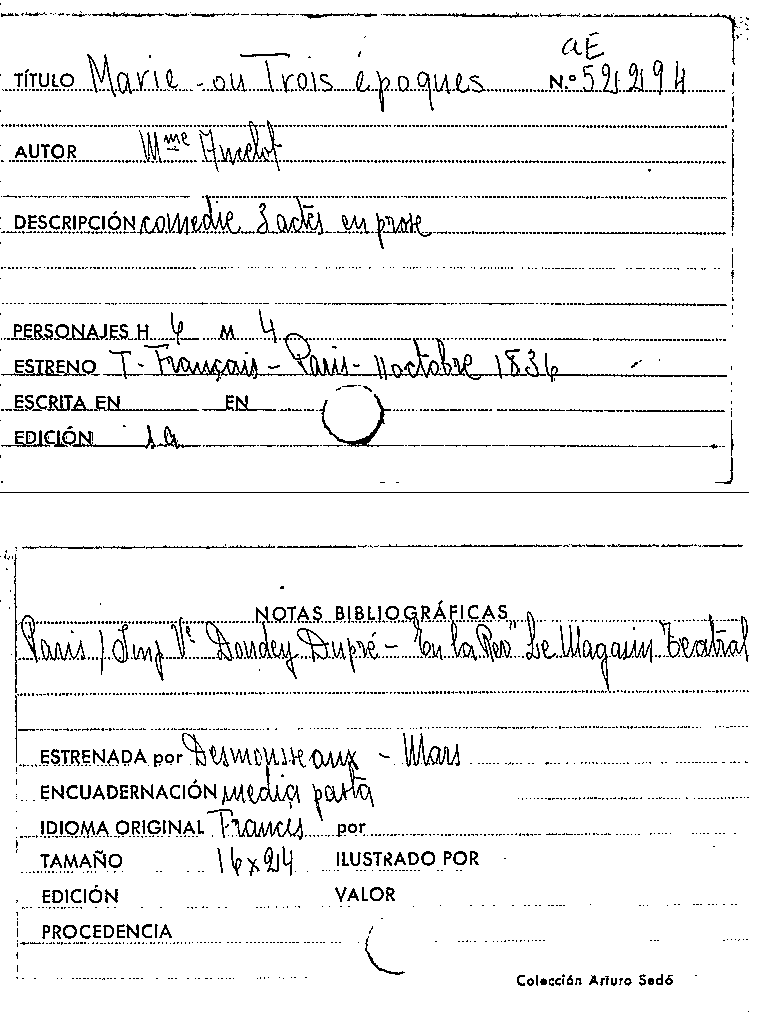 aE
TÍTULO Marie - ou Trois époques N.º 52294
AUTOR Mme Ancelot
DESCRIPCIÓN comedie 3 actes en prose
PERSONAJES H 6 M 4
ESTRENO T. Français - Paris - 11 octobre 1836
ESCRITA EN EN
EDICIÓN 1a
NOTAS BIBLIOGRÁFICAS
Paris / Imp Ve Dondey Dupré - "En la Rev" Le Magasin Teatral
ESTRENADA por Desmousseaux - Mars
ENCUADERNACIÓN media pasta
IDIOMA ORIGINAL Frances por
TAMAÑO 16x24 ILUSTRADO POR
EDICIÓN VALOR
PROCEDENCIA
Colección Arturo Sedó